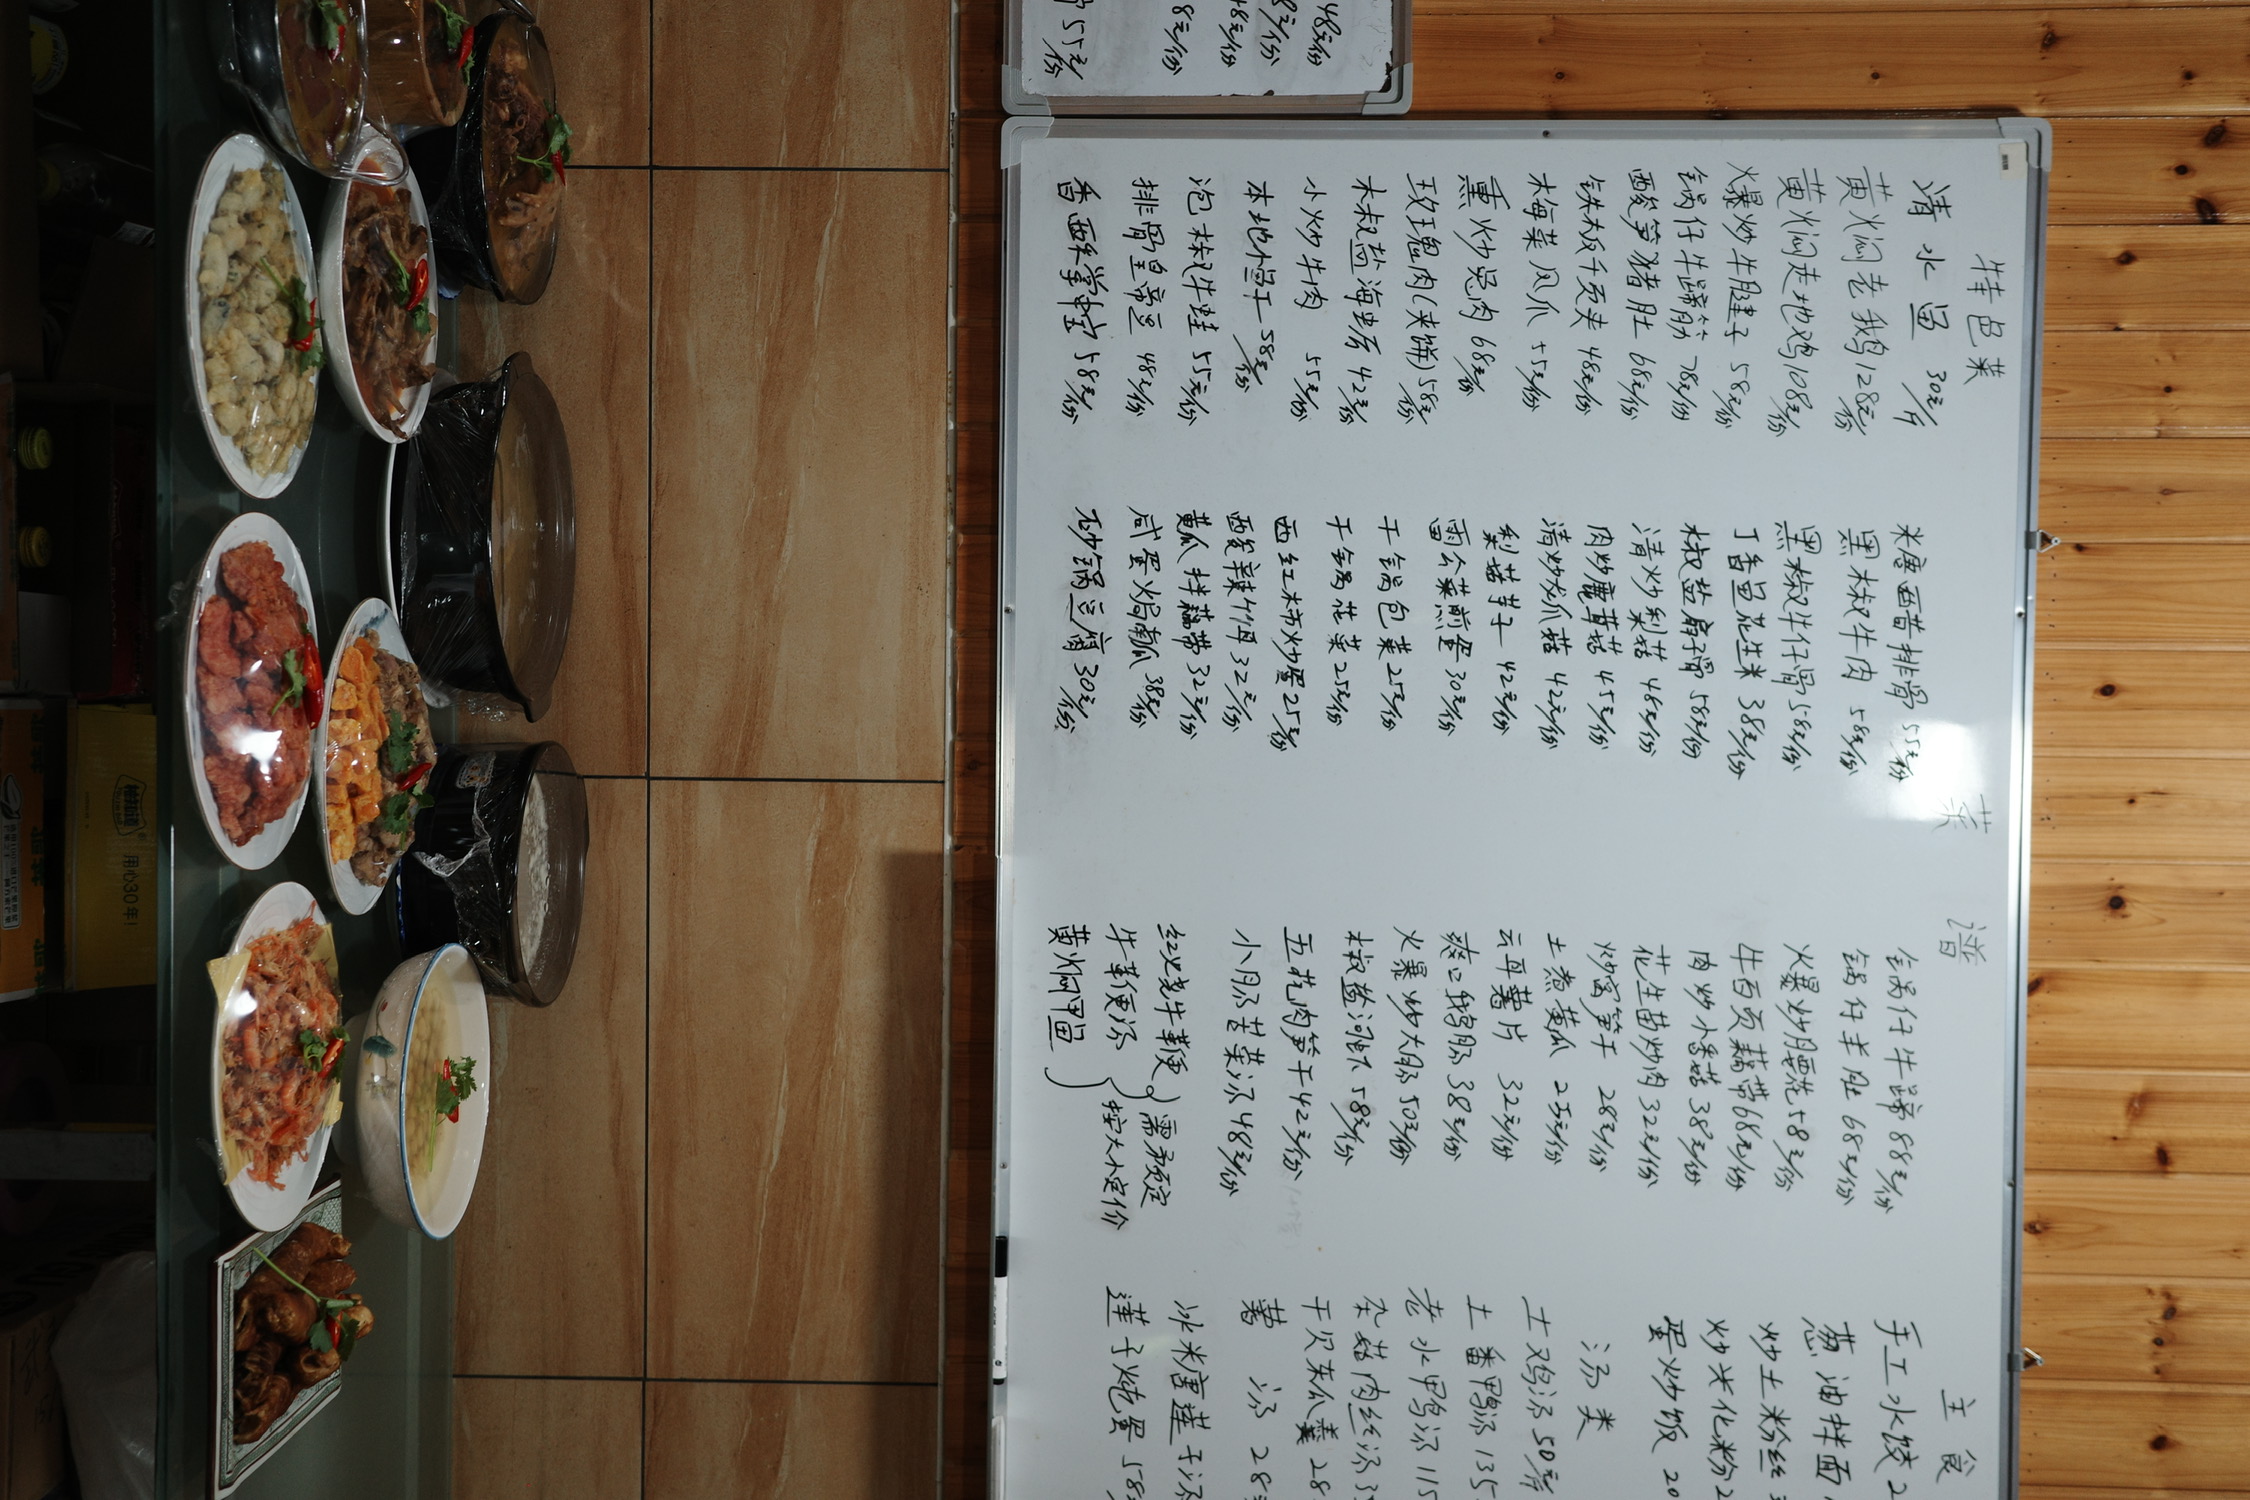 48元/份
8元/份
48元/份
8元/份
55元/份
菜 谱
特色菜
清水鱼 30元/斤
黄焖老鹅 128元/份
黄焖走地鸡 108元/份
爆炒牛腱子 58元/份
锅仔牛蹄筋 78元/份
酸笋猪肚 68元/份
铁板千页夹 48元/份
梅菜凤爪 55元/份
熏炒兔肉 68元/份
玫瑰肉(夹饼) 58元/份
椒盐海蛎 42元/份
小炒牛肉 55元/份
本地小笋干 58元/份
泡椒牛蛙 55元/份
排骨皇帝豆 48元/份
香酥掌中宝 58元/份
糖醋排骨 55元/份
黑椒牛肉 58元/份
黑椒牛仔骨 58元/份
丁香鱼花生米 38元/份
椒盐扇子骨 58元/份
清炒梨菇 48元/份
肉炒鹿茸菇 45元/份
清炒龙爪菇 42元/份
梨菇芋子 42元/份
雨合菜煎蛋 30元/份
干锅包菜 25元/份
干锅花菜 25元/份
西红柿炒蛋 25元/份
酸辣竹耳 32元/份
黄瓜拌藕带 32元/份
咸蛋焗南瓜 38元/份
砂锅豆腐 30元/份
锅仔牛蹄 88元/份
锅仔羊肚 68元/份
火爆炒腰花 58元/份
牛百页藕带 68元/份
肉炒小香菇 38元/份
花生苗炒肉 32元/份
炒窝笋干 28元/份
土煮黄瓜 25元/份
云耳薯片 32元/份
爽口鹅肠 38元/份
火爆炒大肠 50元/份
椒盐河虾 58元/份
五花肉笋干 42元/份
小肠苦菜汤 48元/份
红烧牛鞭
牛鞭汤 需预定
黄焖甲鱼 按大小定价
主食
手工水饺 2
葱油拌面
炒土粉丝
炒米化粉 2
蛋炒饭 20
汤类
土鸡汤 50元/斤
土番鸭汤 135
老水鸭汤 115
杂菇肉丝汤 3
干贝冬瓜羹 28
薯汤 28
冰糖莲子汤
莲子炖蛋 58元
用心30年!